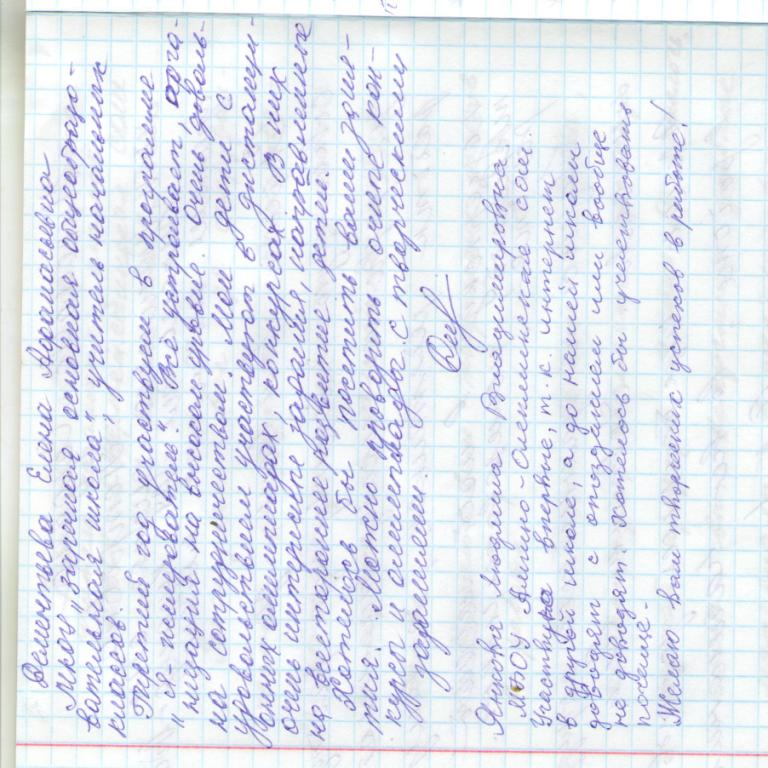 Дементьева Елена Афанасьевна
МКОУ "Заречная основная общеобразо-
вательная школа", учитель начальных
классов.
Третий год участвуем в программе
"Я-исследователь". Всё устраивает, орга-
низация на высоком уровне. Очень доволь-
на сотрудничеством. Мои дети с
удовольствием участвуют в дистанци-
онных олимпиадах, конкурсах. В них
очень интересные задания, направленные
на всестороннее развитие детей.
Хотелось бы посетить ваши заня-
тия. Можно проводить очень кон-
курсы и олимпиады с творческими
заданиями.
Янкова Людмила Владимировна.
МБОУ Амгино-Олекминская сош.
Участвую впервые, т.к. интернет
в другой школе, а до нашей школы
доводят с опозданием или вообще
не доводят. Хотелось бы участвовать
почаще.
Желаю вам творческих успехов в работе!